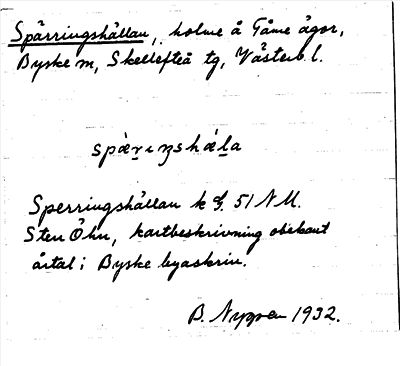 Spärringshällan, holme å Fåme ägor,
Byske m, Skellefteå tg, Västerb. l.
spärıŋshäla
Sperringshällan k f. 51 N M.
Sten Öhn, kartbeskrivning obekant
årtal i Byske byaskrin.
B. Nyman 1932.